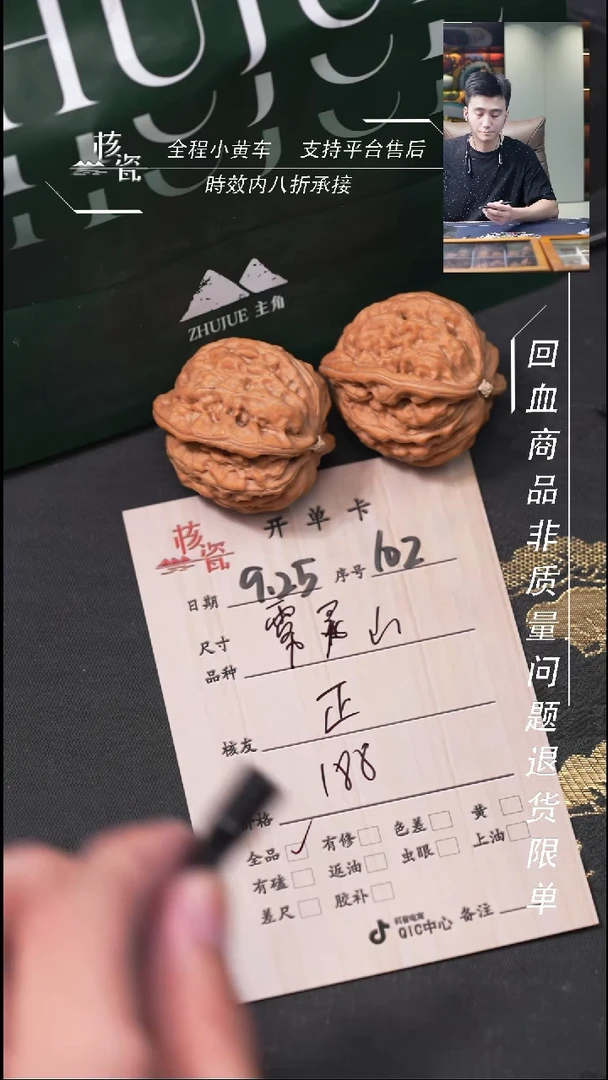 ZHUJUE
核瓷
全程小黄车 支持平台售后
時效内八折承接
ZHUJUE 主角
回血商品非质量问题退货限单
核瓷
开单卡
日期 9.25 序号 102
尺寸
品种
核友 正
价格 188
全品 ✓ 有修 色差 黄
有磕 返油 虫眼 上油
差尺 胶补
抖音电商
QIC中心 备注